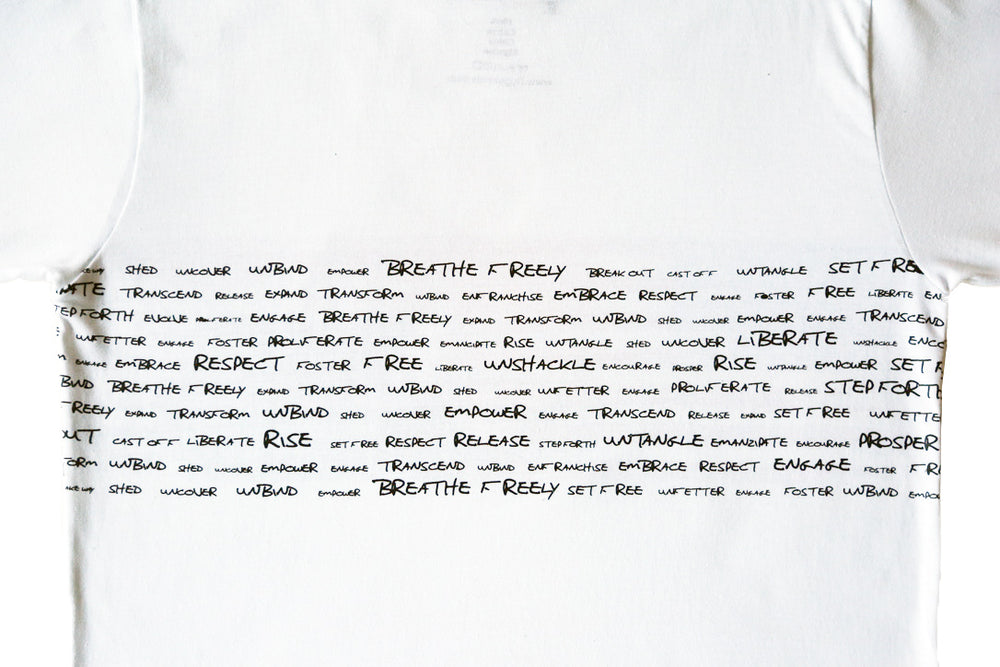 SHED UNCOVER UNBIND EMPOWER BREATHE FREELY BREAK OUT CAST OFF UNTANGLE SET FREE
TRANSCEND RELEASE EXPAND TRANSFORM UNBIND ENFRANCHISE EMBRACE RESPECT ENGAGE FOSTER FREE LIBERATE EN
TEP FORTH EVOLVE PROLIFERATE ENGAGE BREATHE FREELY EXPAND TRANSFORM UNBIND SHED UNCOVER EMPOWER ENGAGE TRANSCEND
UNFETTER ENGAGE FOSTER PROLIFERATE EMPOWER EMANCIPATE RISE UNTANGLE SHED UNCOVER LIBERATE UNSHACKLE ENCO
ENGAGE EMBRACE RESPECT FOSTER FREE LIBERATE UNSHACKLE ENCOURAGE PROSPER RISE UNTANGLE EMPOWER SET F
BIND BREATHE FREELY EXPAND TRANSFORM UNBIND SHED UNCOVER UNFETTER ENGAGE PROLIFERATE RELEASE STEP FORTH
FREELY EXPAND TRANSFORM UNBIND SHED UNCOVER EMPOWER ENGAGE TRANSCEND RELEASE EXPAND SET FREE UNFETTE
OUT CAST OFF LIBERATE RISE SET FREE RESPECT RELEASE STEP FORTH UNTANGLE EMANZIPATE ENCOURAGE PROSPER
ORM UNBIND SHED UNCOVER EMPOWER ENGAGE TRANSCEND UNBIND ENFRANCHISE EMBRACE RESPECT ENGAGE FOSTER FR
SHED UNCOVER UNBIND EMPOWER BREATHE FREELY SET FREE UNFETTER ENGAGE FOSTER UNBIND EMPO